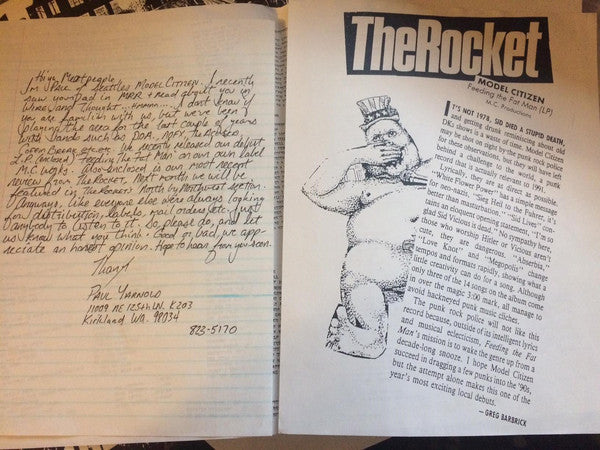 Hiya Meatpeople,
I'm Paul of Seattles MODEL CITIZEN. I recently
saw your ad in MRR + Read about you in
and thought ...Hmmm.... I don't know if
you are familiar with us, but we've been
playing the area for the last couple of years
with bands such as D.O.A.
We recently released our debut
L.P. (enclosed) "Feeding the Fat Man" on our own label
M.C. works. Also enclosed is our most recent
review from The Rocket. Next month we will be
featured in The Rocket's North by Northwest section.
Anyways, Like everyone else were always looking
for distribution, labels, mail orders etc. Just
anybody to listen to it. So please do, and let
us know what you think. Good or bad we app-
reciate an honest opinion. Hope to hear from you soon.
Thanx
PAUL YARNOLD
11009 NE 125th LN. K203
Kirkland WA. 98034
823-5170
TheRocket
MODEL CITIZEN
Feeding the Fat Man (LP)
M.C. Productions
IT'S NOT 1978, SID DIED A STUPID DEATH,
and getting drunk reminiscing about old
DKs shows is a waste of time. Model Citizen
may be shot on sight by the punk rock police
for these observations, but they will leave
behind a challenge to the world, a punk
record that is actually relevant to 1991.
Lyrically, they are as direct as possible.
"White Power Power" has a simple message
for neo-nazis, "Sieg Heil to the Fuhrer, it's
better than masturbation." "Sid Lives" con-
tains an eloquent opening statement, "I'm so
glad Sid Vicious is dead." No sympathy here,
those who worship Hitler or Vicious aren't
cute, they are dangerous. "Albertina,"
"Love Klong" and "Megopolis" change
tempos and formats rapidly, showing what a
little creativity can do for a song. Although
only three of the 14 songs on the album come
in over the magic 3:00 mark, all manage to
avoid hackneyed punk music cliches.
The punk rock police will not like this
record because, outside of its intelligent lyrics
and musical eclecticism, Feeding the Fat
Man's mission is to wake the genre up from a
decade-long snooze. I hope Model Citizen
succeed in dragging a few punks into the '90s,
but the attempt alone makes this one of the
year's most exciting local debuts.
— GREG BARBRICK